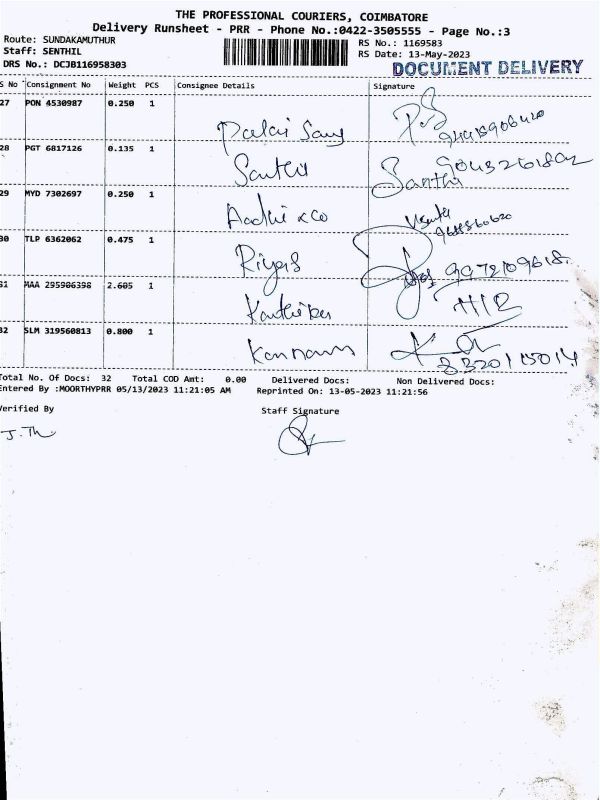 THE PROFESSIONAL COURIERS, COIMBATORE
Delivery Runsheet - PRR - Phone No.:0422-3505555 - Page No.:3
Route: SUNDAKAMUTHUR
Staff: SENTHIL
DRS No.: DCJB116958303
RS No.: 1169583
RS Date: 13-May-2023
DOCUMENT DELIVERY
S No Consignment No Weight PCS Consignee Details Signature
27 PON 4530987 0.250 1
28 PGT 6817126 0.135 1
Santhi
29 MYD 7302697 0.250 1
30 TLP 6362062 0.475 1
Riyas
31 MAA 295906398 2.605 1
32 SLM 319560813 0.800 1
Kannan
Total No. Of Docs: 32 Total COD Amt: 0.00 Delivered Docs: Non Delivered Docs:
Entered By :MOORTHYPRR 05/13/2023 11:21:05 AM Reprinted On: 13-05-2023 11:21:56
Verified By Staff Signature